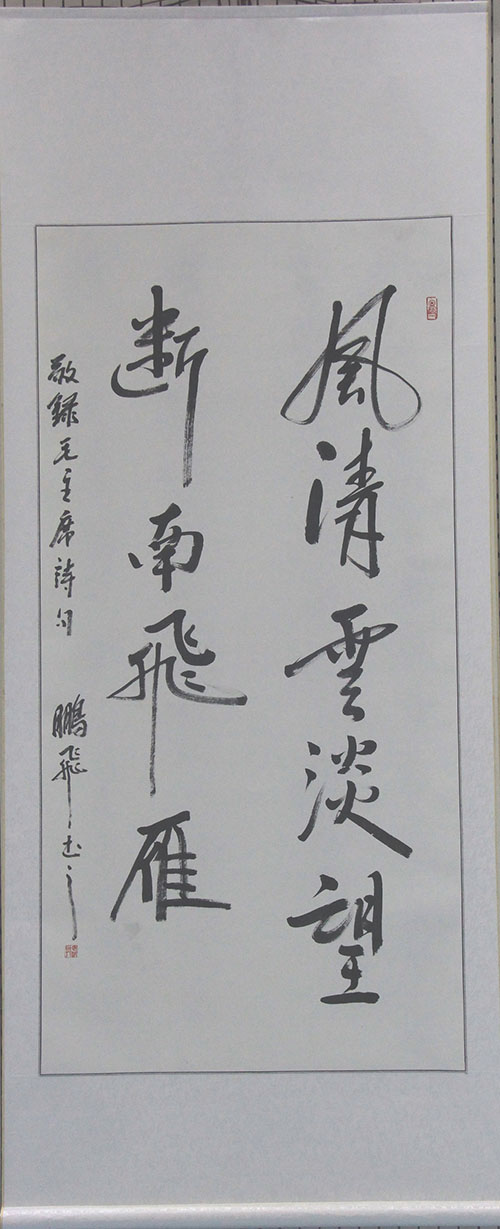 風清雲淡望
断南飛雁
敬録毛主席詩句 鵬飛书之